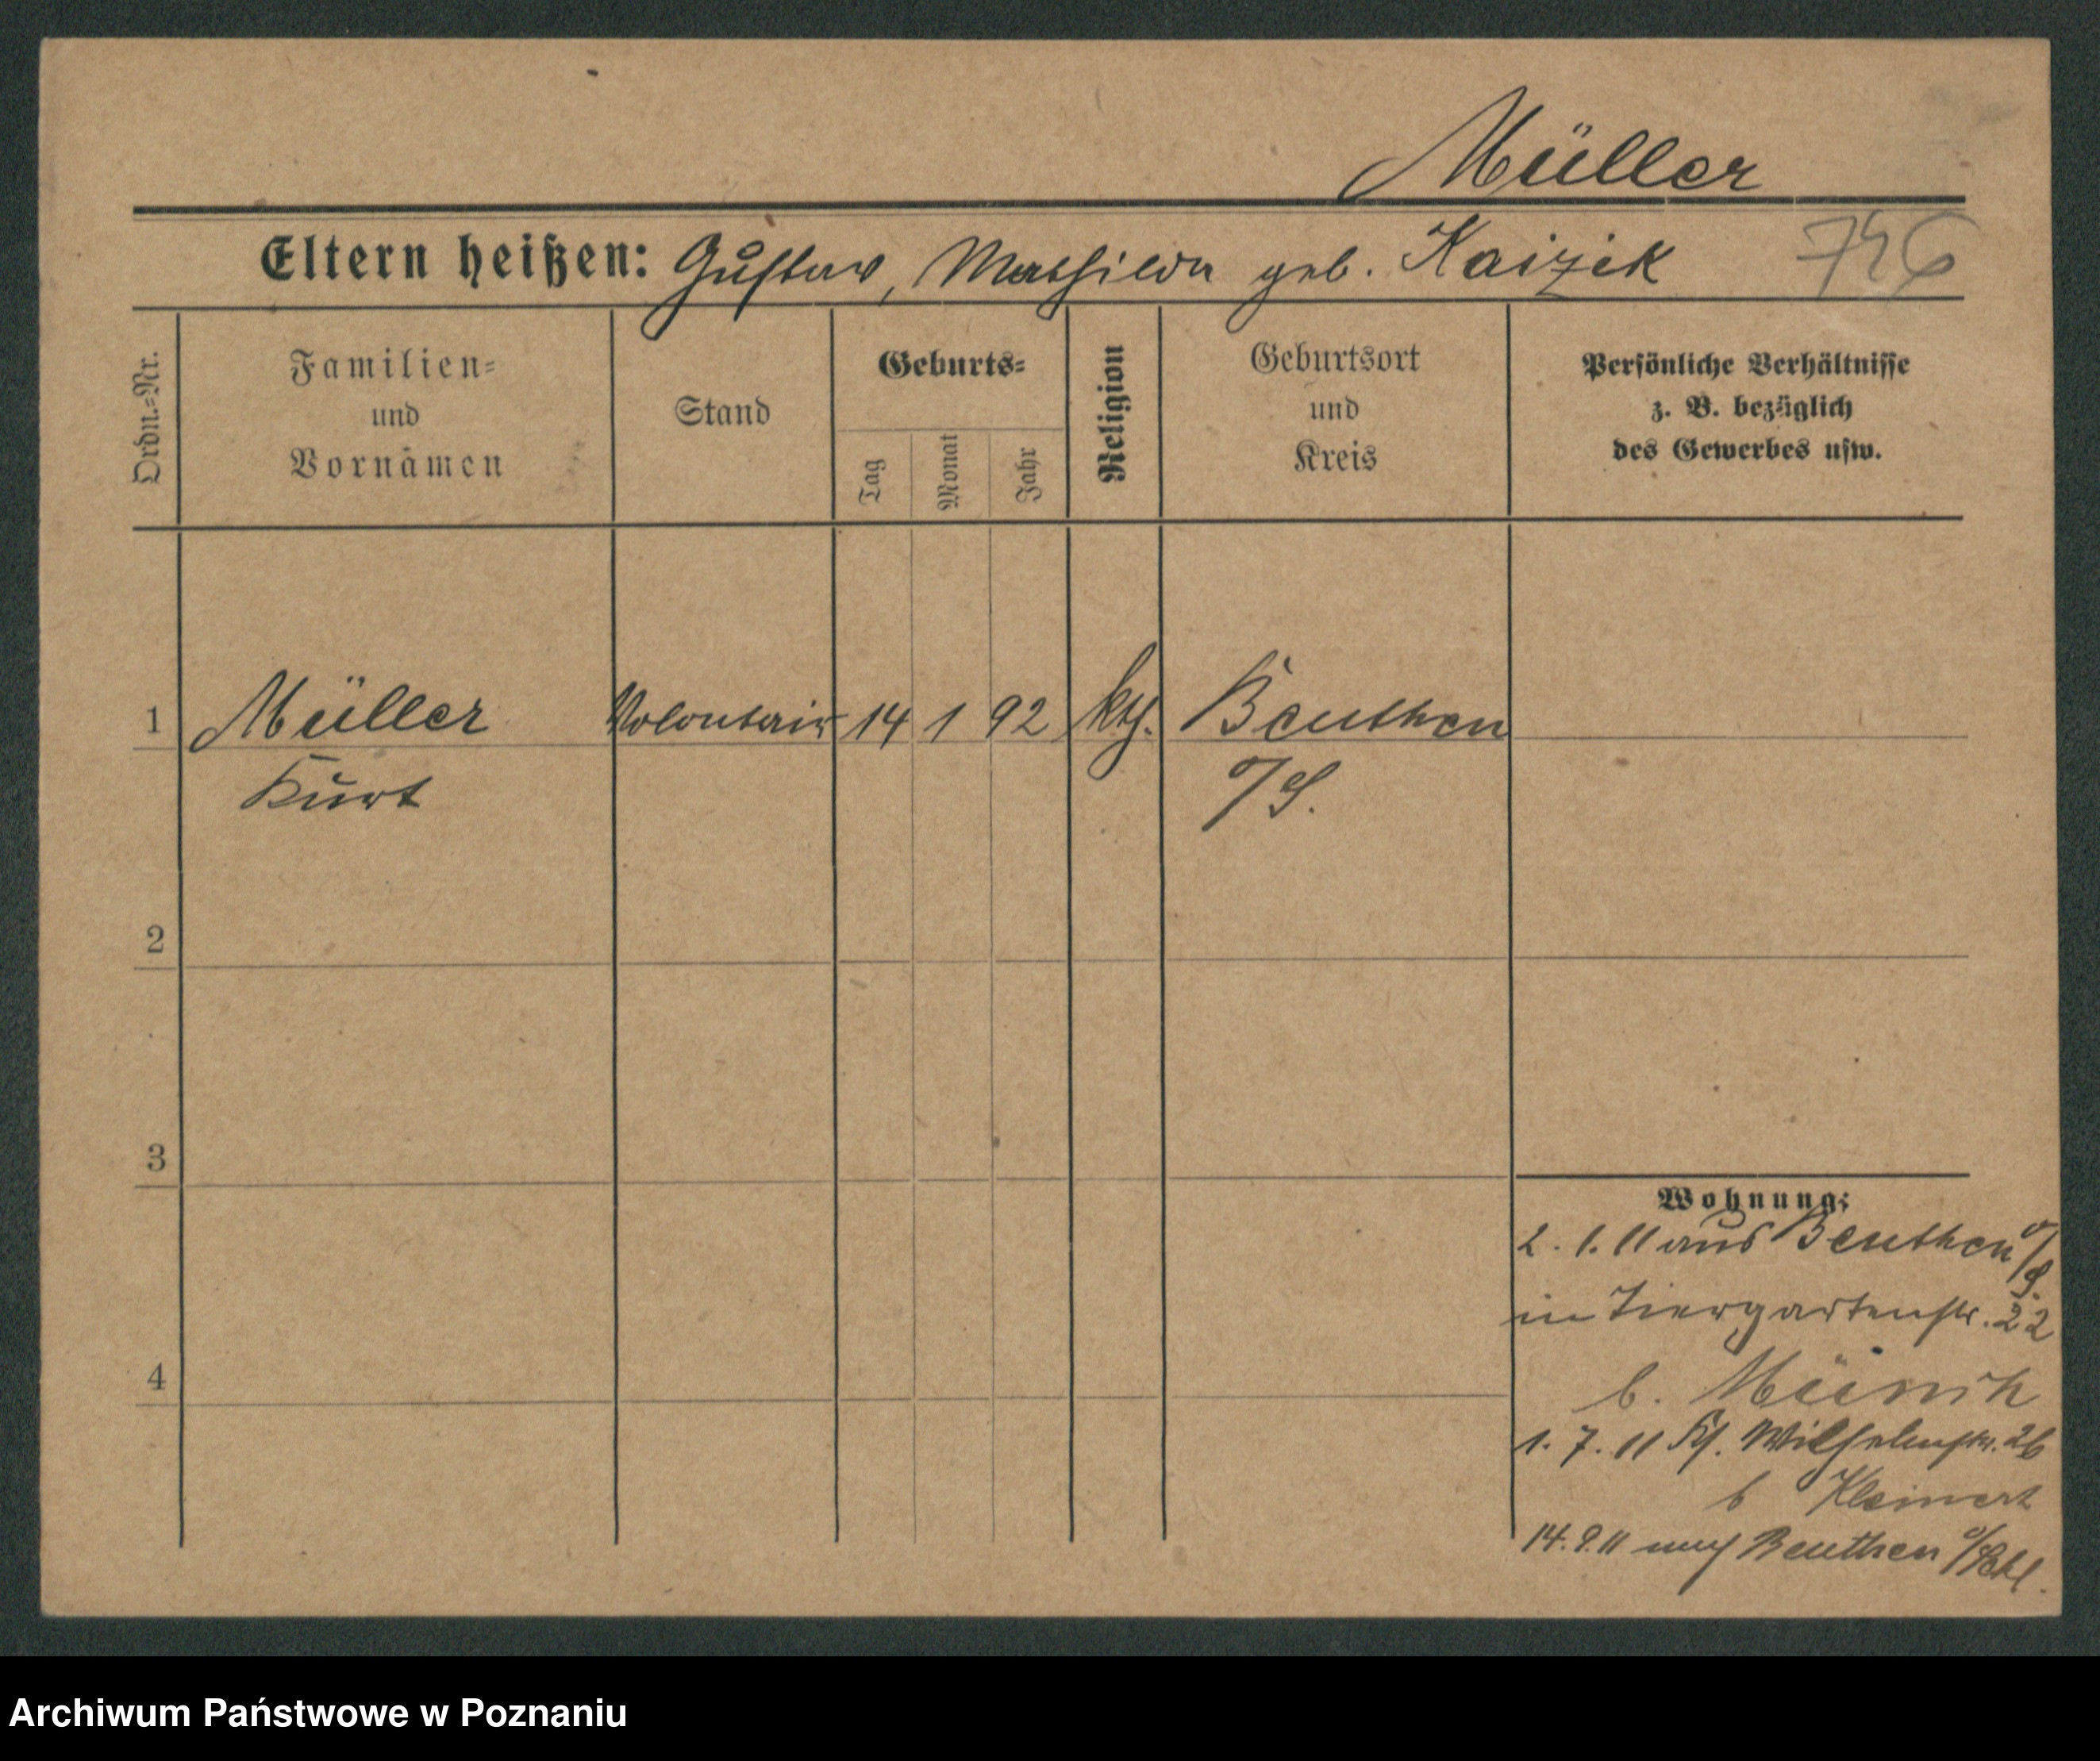 Müller
Eltern heißen: Gustav, Mathilde geb. Kaizik
746
Ordn.=Nr.
Familien=
und
Vornamen
Stand
Geburts=
Tag
Monat
Jahr
Religion
Geburtsort
und
Kreis
Persönliche Verhältnisse
z. B. bezüglich
des Gewerbes usw.
1 Müller Volontair 14 1 92 kth. Beuthen
Kurt O/S.
2
3
4
Wohnung:
2. 1. 11 aus Beuthen O/S.
in Tiergartenstr. 22
b. Münch
1. 7. 11 Kl. Wilhelmstr. 26
b Kleinert
14. 9. 11 nach Beuthen O/Schl.
Archiwum Państwowe w Poznaniu